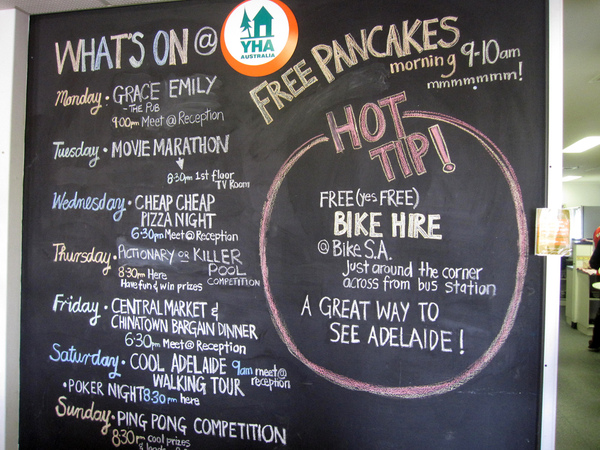 WHAT'S ON @
YHA
AUSTRALIA
FREE PANCAKES
morning 9-10am
mmmmmmm!
Monday · GRACE EMILY
- THE PUB
9:00pm Meet @ Reception
Tuesday · MOVIE MARATHON
8:30pm 1st floor
TV Room
Wednesday · CHEAP CHEAP
PIZZA NIGHT
6:30pm Meet @ Reception
Thursday · PICTIONARY OR KILLER
POOL
COMPETITION
8:30pm Here
Have fun & win prizes
Friday · CENTRAL MARKET &
CHINATOWN BARGAIN DINNER
6:30pm Meet @ Reception
Saturday · COOL ADELAIDE 9am meet @
WALKING TOUR reception
· POKER NIGHT 8:30pm here
Sunday · PING PONG COMPETITION
8:30pm cool prizes
HOT
TIP!
FREE (yes FREE)
BIKE HIRE
@ Bike S.A.
Just around the corner
across from bus station
A GREAT WAY TO
SEE ADELAIDE!